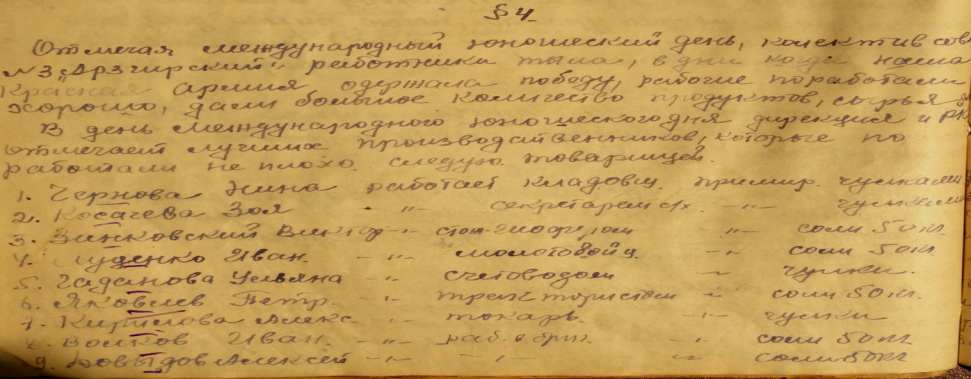 § 4
Отмечая международный юношеский день, колектив сов
№3 "Арзгирский" работники тыла, в дни когда наша
Красная армия одержала победу, рабочие поработали
хорошо, дали большое количество продуктов, сырья
В день международного юношеского дня дирекция и РК
отмечает лучших производственников, которые по
работали не плохо следую товарищей.
1. Чернова Нина работает кладовщ. примир. чулками
2. Косачева Зоя -"- секретарем с/х. -"-
3. Зинковский Виктор -"- -"- соли 50 кг.
4. Луденко Иван. -"- молотобойц -"- соли 50 кг
5. Гаданова Ульяна -"- счетоводом -"- чулки.
6. Яковлев Петр. -"- трактористом -"- соли 50 кг.
7. Кирилова Алекс. -"- токарь. -"- чулки
8. Волков Иван. -"- раб. -"- соли 50 кг.
9. Довыдов Алексей -"- -"- -"- соли 50 кг